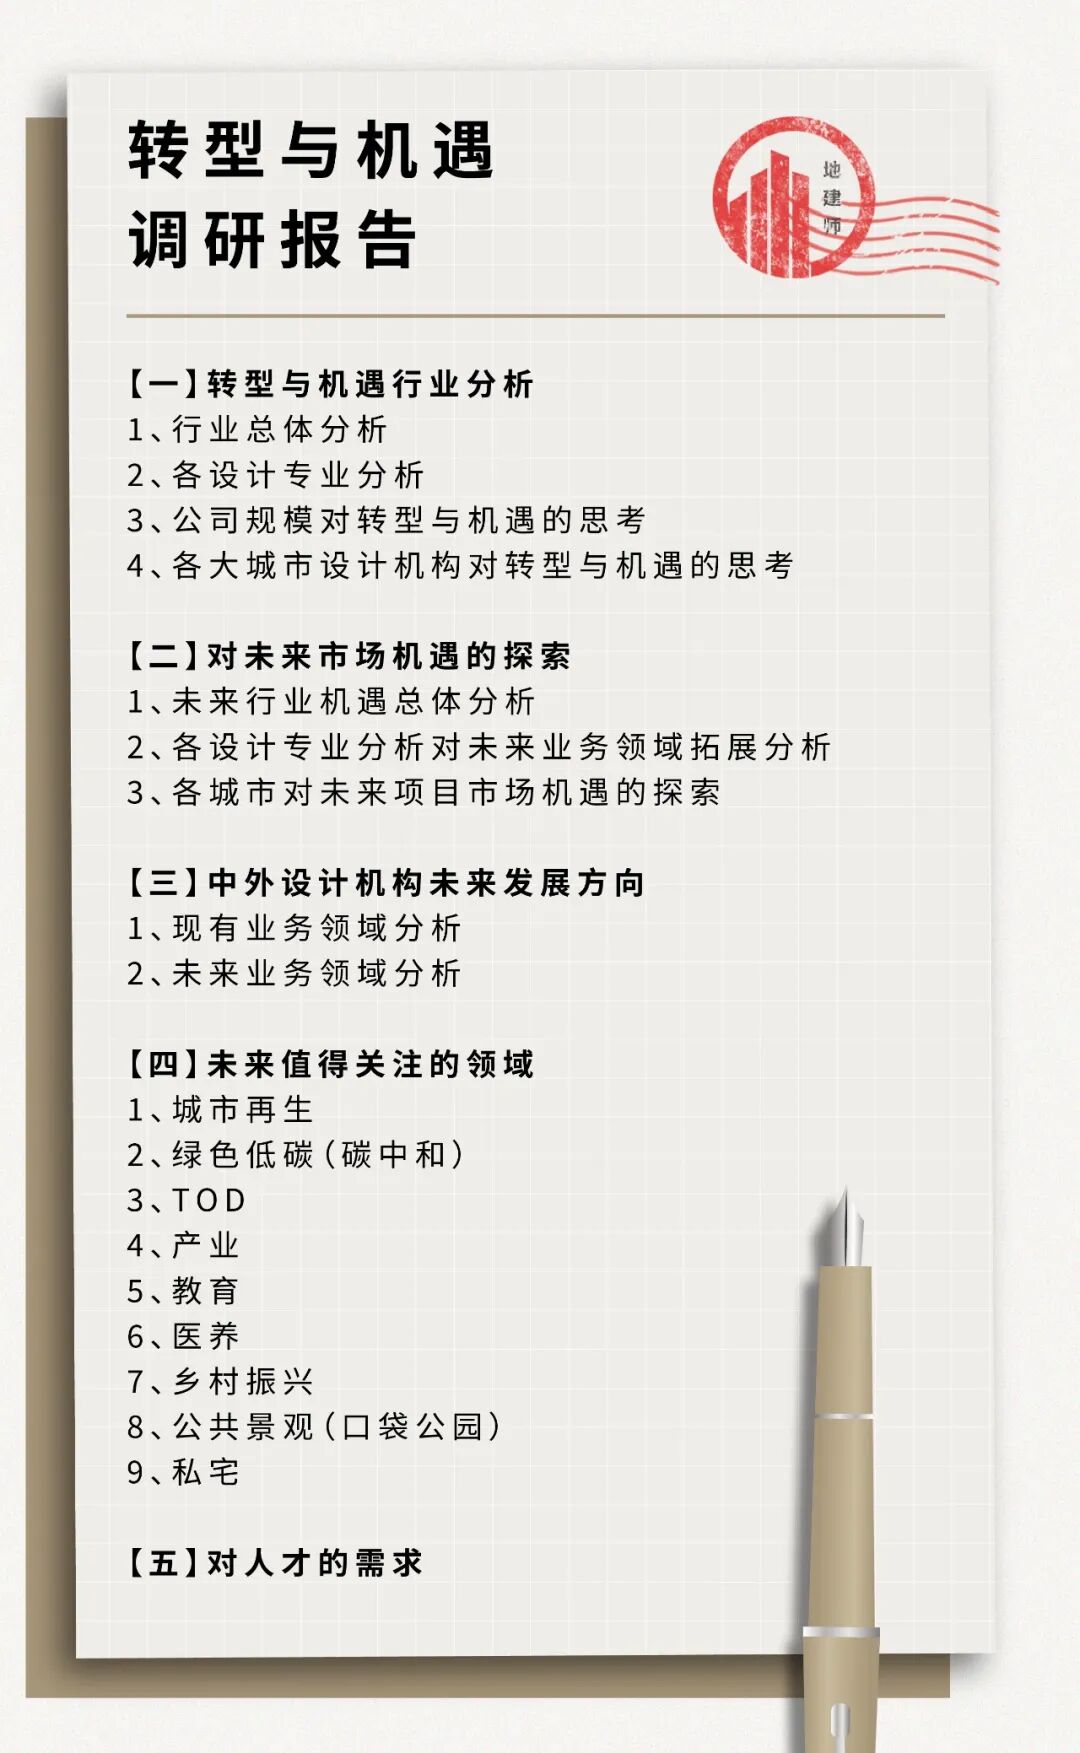 转型与机遇
调研报告
地建师
【一】转型与机遇行业分析
1、行业总体分析
2、各设计专业分析
3、公司规模对转型与机遇的思考
4、各大城市设计机构对转型与机遇的思考
【二】对未来市场机遇的探索
1、未来行业机遇总体分析
2、各设计专业分析对未来业务领域拓展分析
3、各城市对未来项目市场机遇的探索
【三】中外设计机构未来发展方向
1、现有业务领域分析
2、未来业务领域分析
【四】未来值得关注的领域
1、城市再生
2、绿色低碳（碳中和）
3、TOD
4、产业
5、教育
6、医养
7、乡村振兴
8、公共景观（口袋公园）
9、私宅
【五】对人才的需求